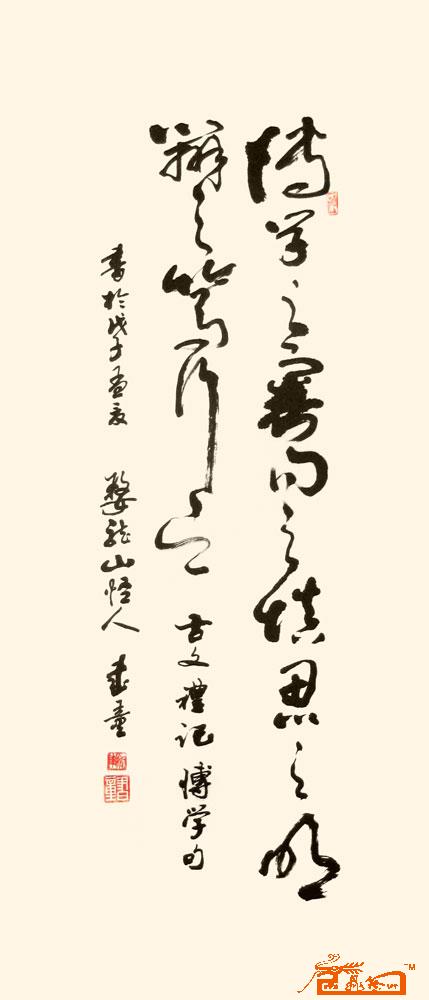 博学之審问之慎思之明
辨之笃行之 古文禮记博学句
書於戊子孟夏 婺龙山悟人 書童